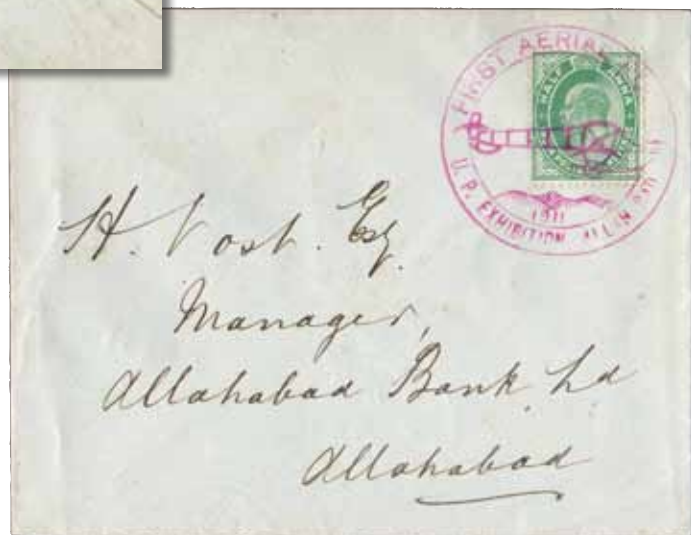 FIRST AERIAL
HALF ANNA
1911
U. P. EXHIBITION ALLAHABAD
H. Vost. Esq.
Manager,
Allahabad Bank Ld
Allahabad